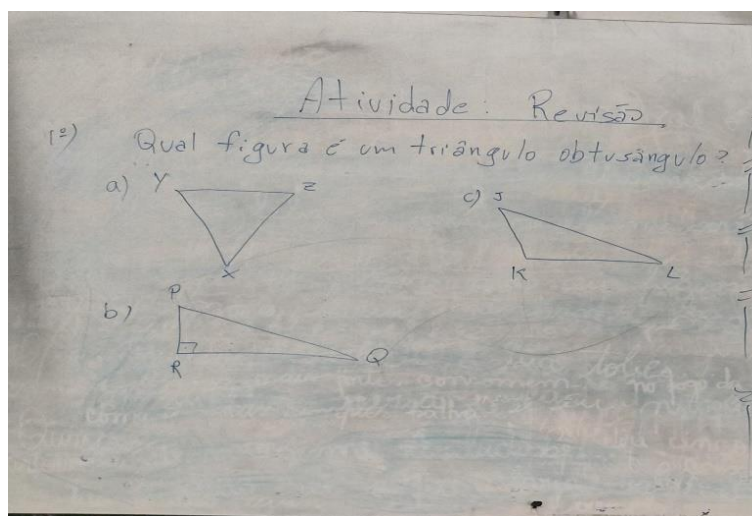 Atividade: Revisão
1º) Qual figura é um triângulo obtusângulo?
a) Y Z
X
c) J
K L
b) P
R Q